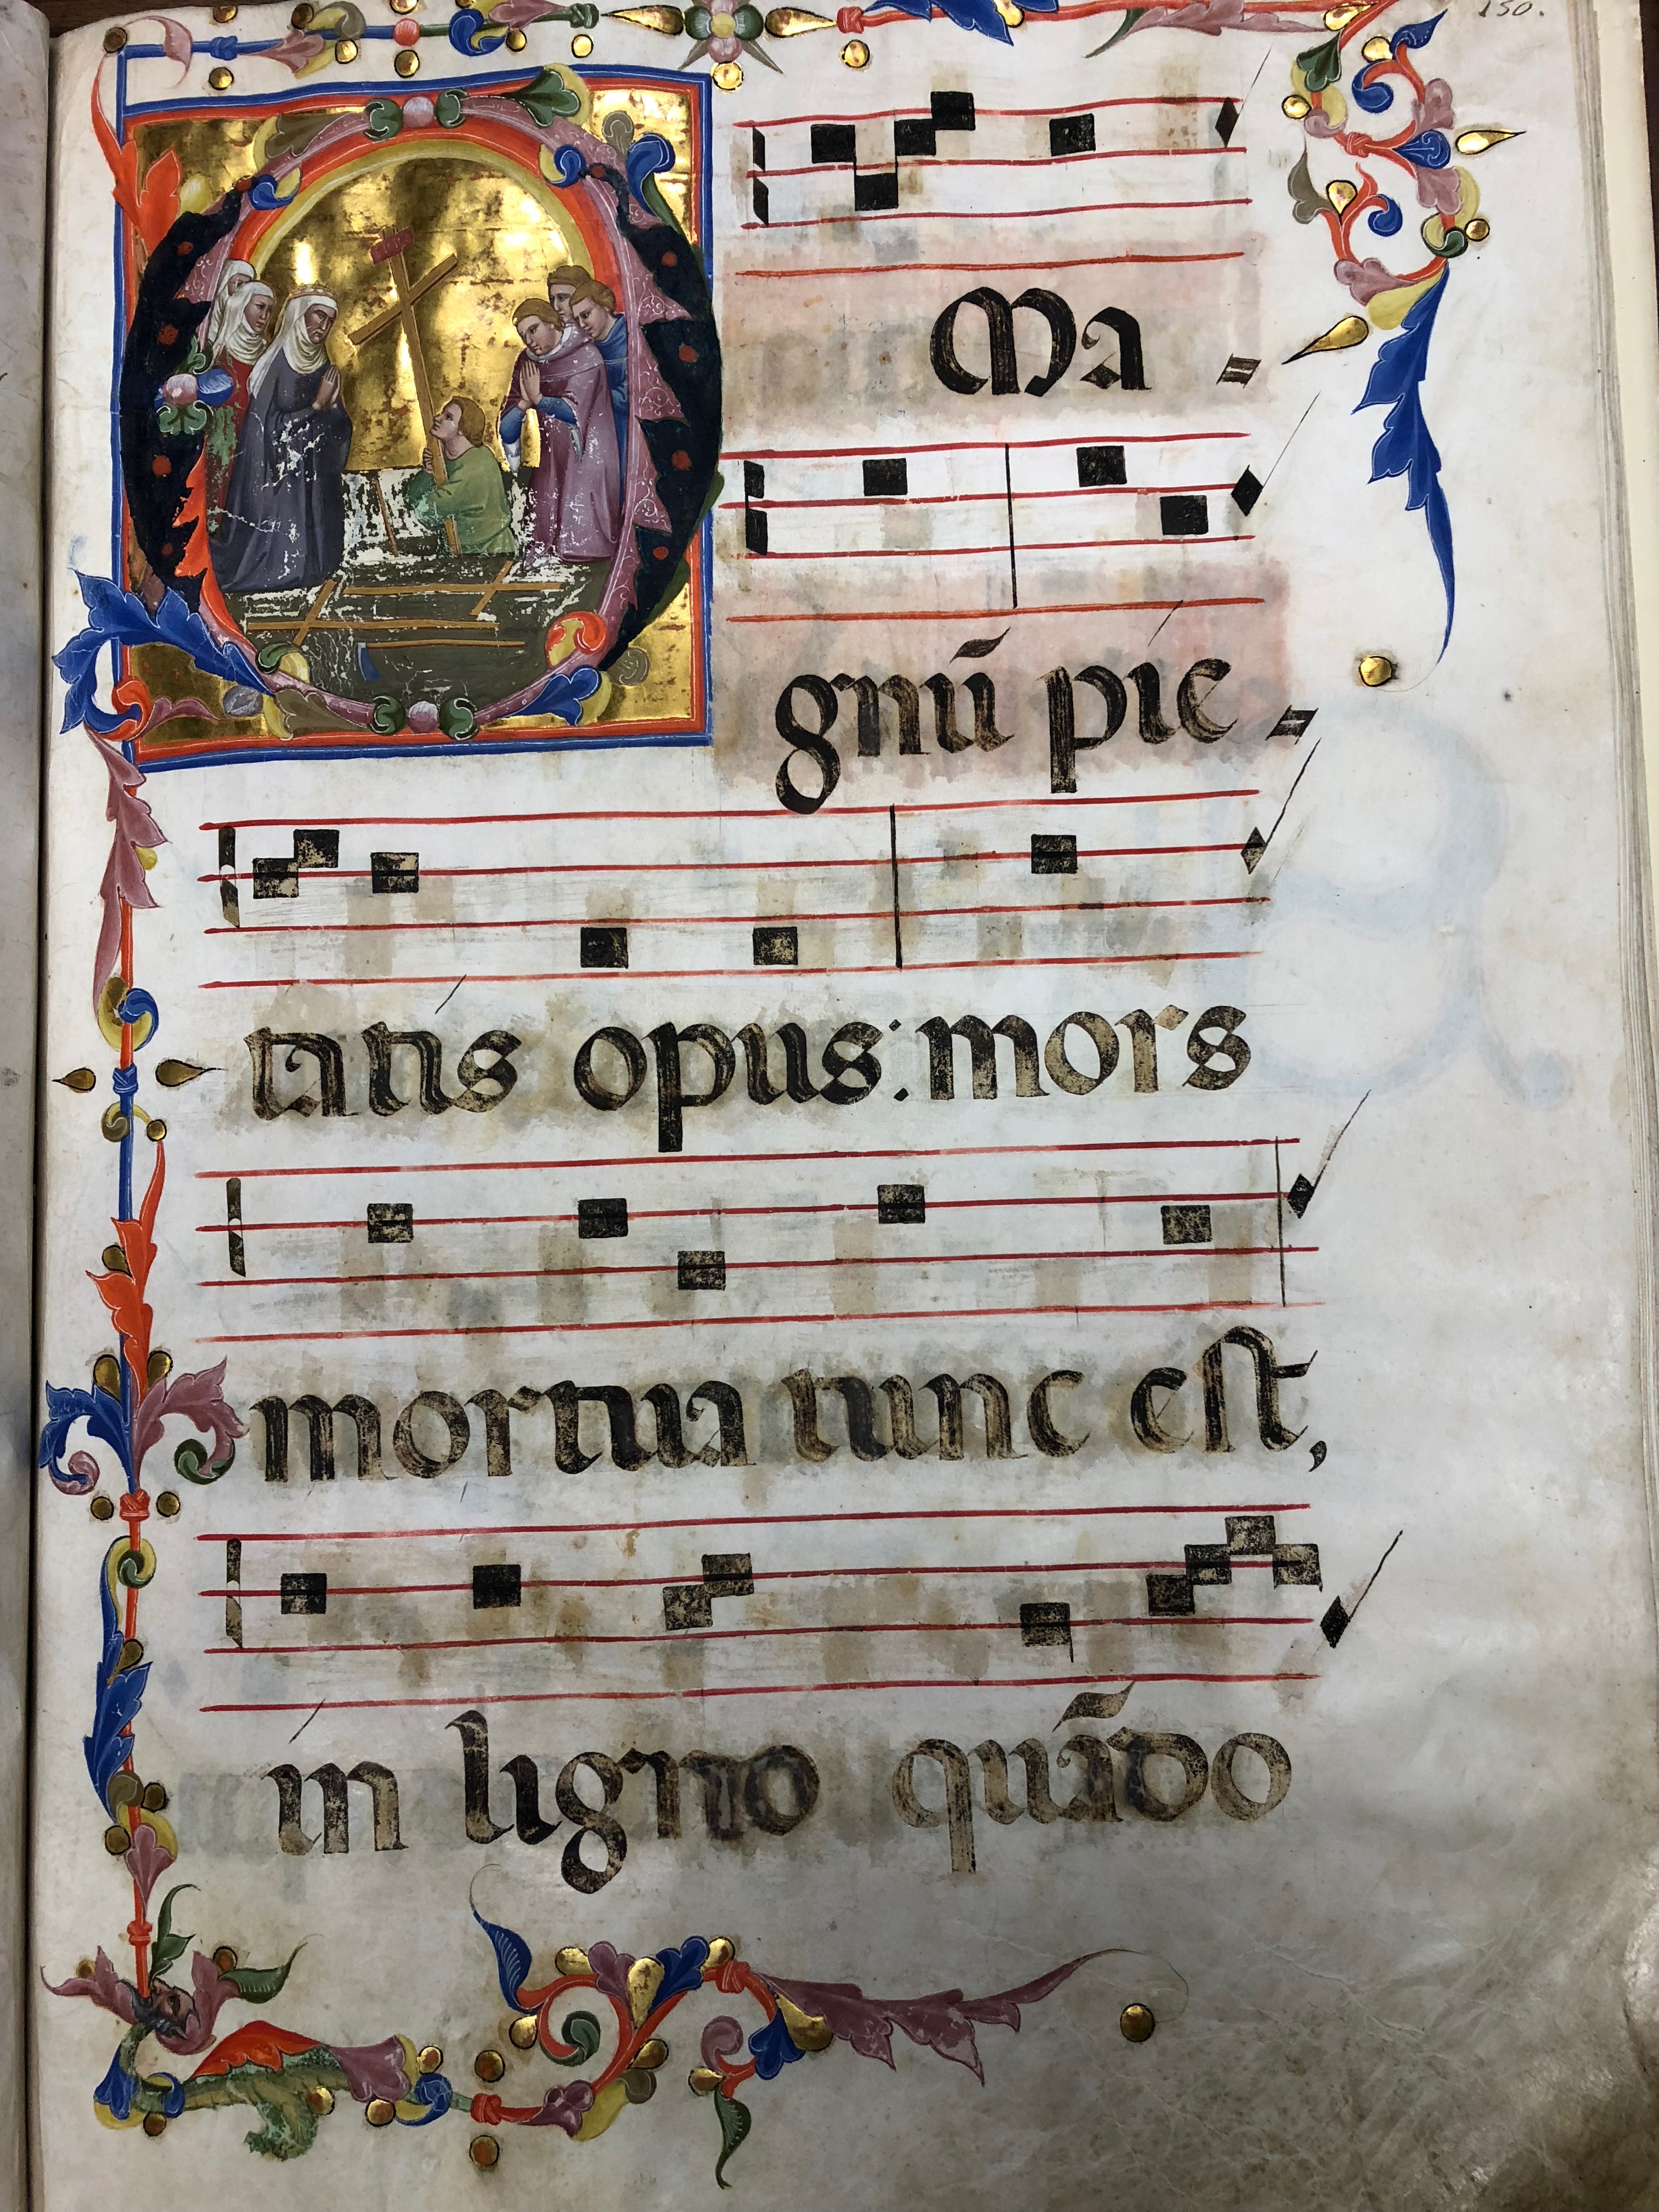 150.
Ma=
gnū pie=
tatis opus: mors
mortua tunc est,
in ligno quādo